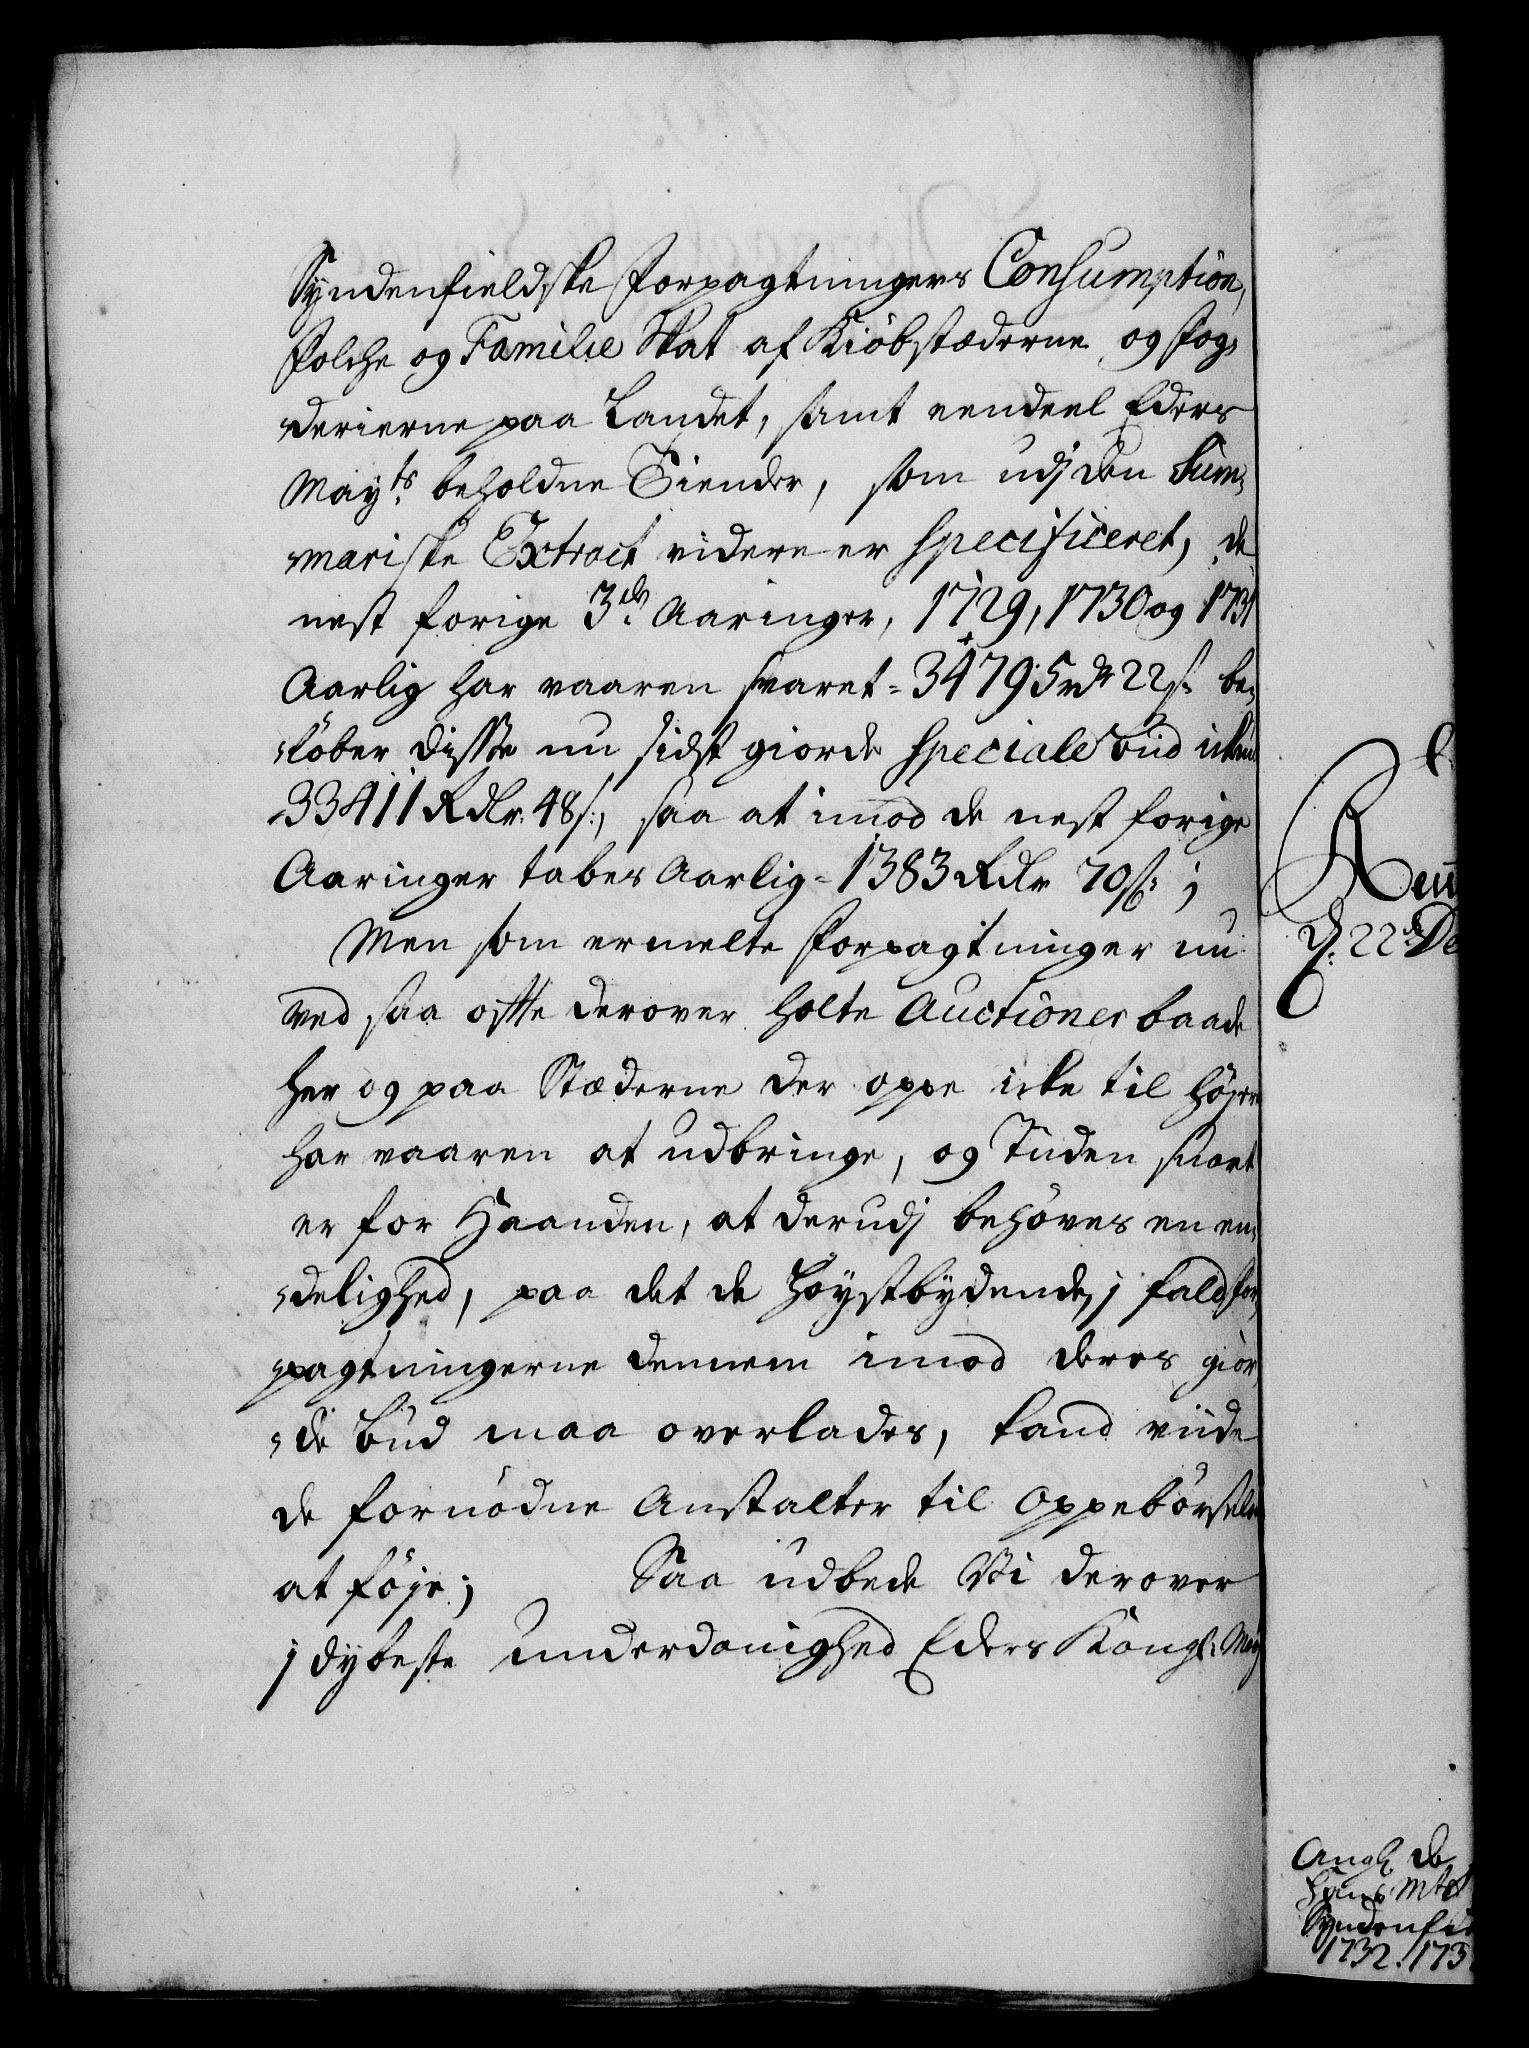 Syndenfieldske forpagtningers Consumption,
folche og Familie Skat af Kiöbstæderne og fog,
derierne paa Landet, samt eendeel Eders
Mayts. beholdne Tiender, som udj den Sum,
mariske Extract videre er specificeret, de
nest forige 3de Aaringer, 1729, 1730 og 1731
Aarlig har vaaren svaret = 34795 rdr 22 s: be,
,löber disse nu sidst giorde speciale bud ickun
33411 Rdlr. 48 s:, saa at imod de nest forige
Aaringer tabes Aarlig = 1383 Rdlr 70 s: ;
Men som ermelte forpagtninger nu
ved saa offte derover holte Auctioner baade
her og paa Stæderne der oppe icke til höjere
har vaaren at udbringe, og Tiiden snart
er for Haanden, at derudj behöves en en,
,delighed, paa det de Höystbydende, j fald for,
pagtningerne dennem imod deres gior,
,de bud maa overlades, kand viide
de fornödne Anstalter til Oppebörselen
at föje; Saa udbede Vi derover
j dybeste underdanighed Eders Kongl: May
d. 22de De
Ang. de
Hans Mts
Syndenfie
1732. 173